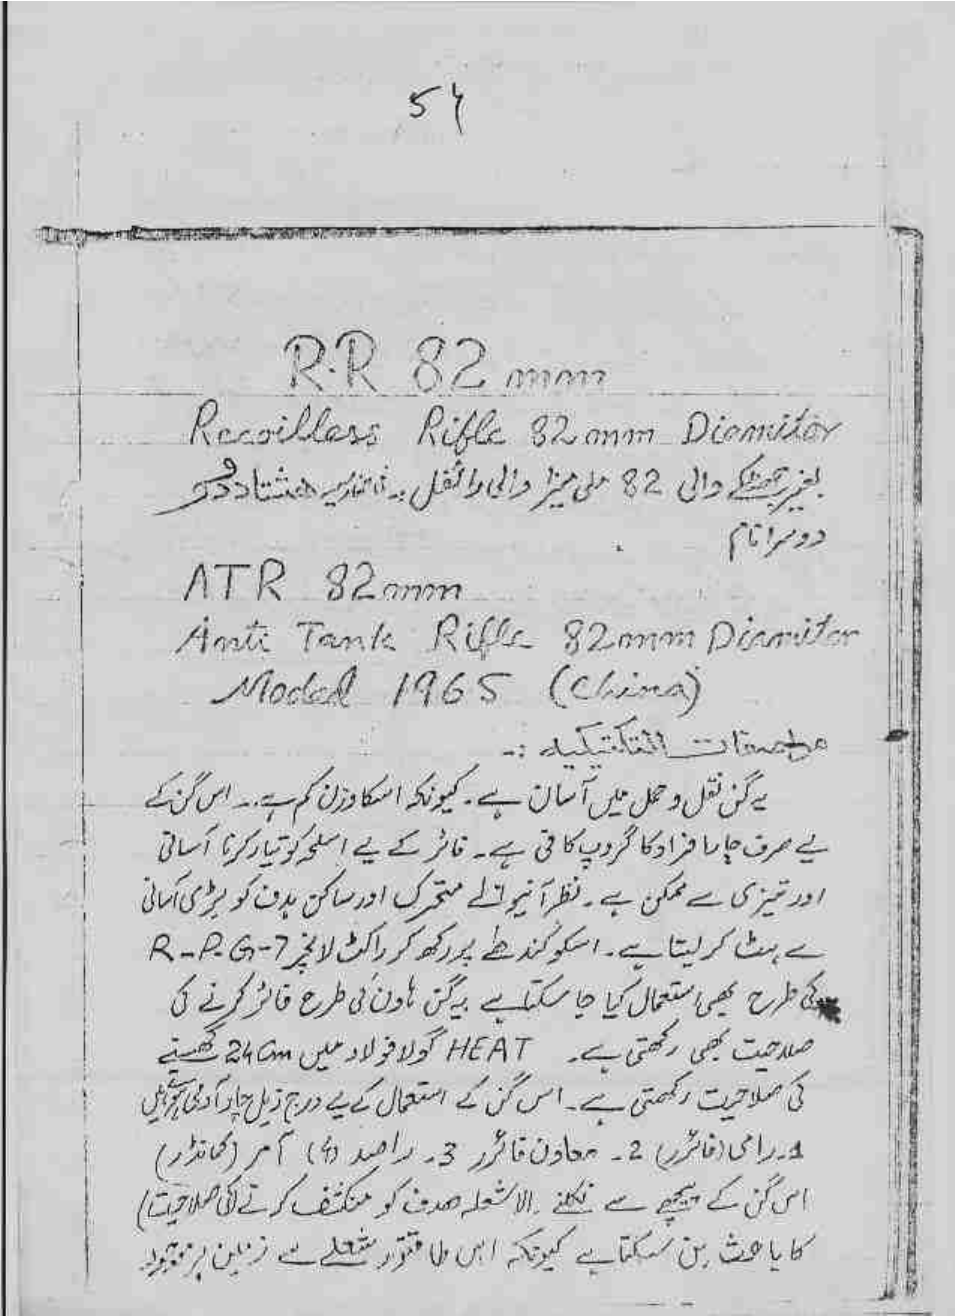 54
R.R 82 mm
Recoilless Rifle 82mm Diamiter
بغیر جھٹکے والی 82 ملی میٹر والی رائفل ھشتاد دو
دوسرا نام
ATR 82mm
Anti Tank Rifle 82mm Diamiter
Model 1965 (China)
مواصفات التکتیکیہ :-
یہ گن نقل و حمل میں آسان ہے۔ کیونکہ اسکا وزن کم ہے۔ اس گن کے
لیے صرف چار افراد کا گروپ کافی ہے۔ فائر کے لیے اسلحہ کو تیار کرنا آسانی
اور تیزی سے ممکن ہے۔ نظر آنیوالے متحرک اور ساکن ہدف کو بڑی آسانی
سے ہٹ کر لیتا ہے۔ اسکو کندھے پر رکھ کر راکٹ لانچر R-P.G-7
کی طرح بھی استعمال کیا جا سکتا ہے یہ گن ہاون کی طرح فائر کرنے کی
صلاحیت بھی رکھتی ہے۔ HEAT گولا فولاد میں 24 Cm گھسنے
کی صلاحیت رکھتی ہے۔ اس گن کے استعمال کے لیے درج ذیل چار آدمی ہوتے ہیں
1۔ رامی (فائرر) 2۔ معاون فائرر 3۔ راصد (4) آمر (کمانڈر)
اس گن کے پیچھے سے نکلنے والا شعلہ ھدف کو منکشف کرنے (کی صلاحیت)
کا باعث بن سکتا ہے کیونکہ اس طاقتور شعلے سے زمین پر موجود